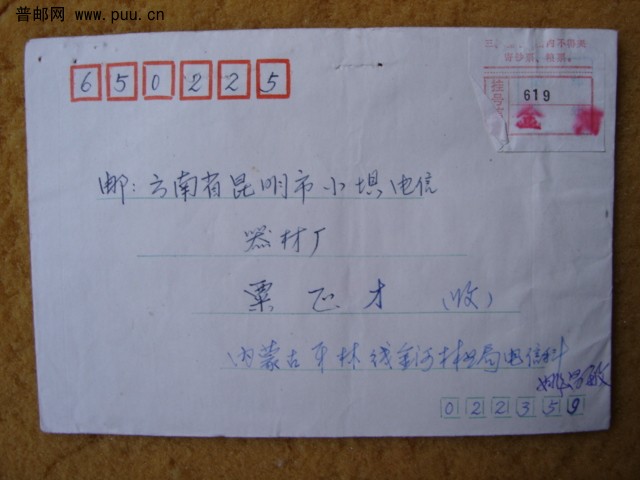 普邮网 www.puu.cn
650225
内不得夹
寄钞票、粮票。
挂号
619
金河
邮:云南省昆明市小垻电信
器材厂
粟正才(收)
内蒙古牙林线金河林业局电信科
022359